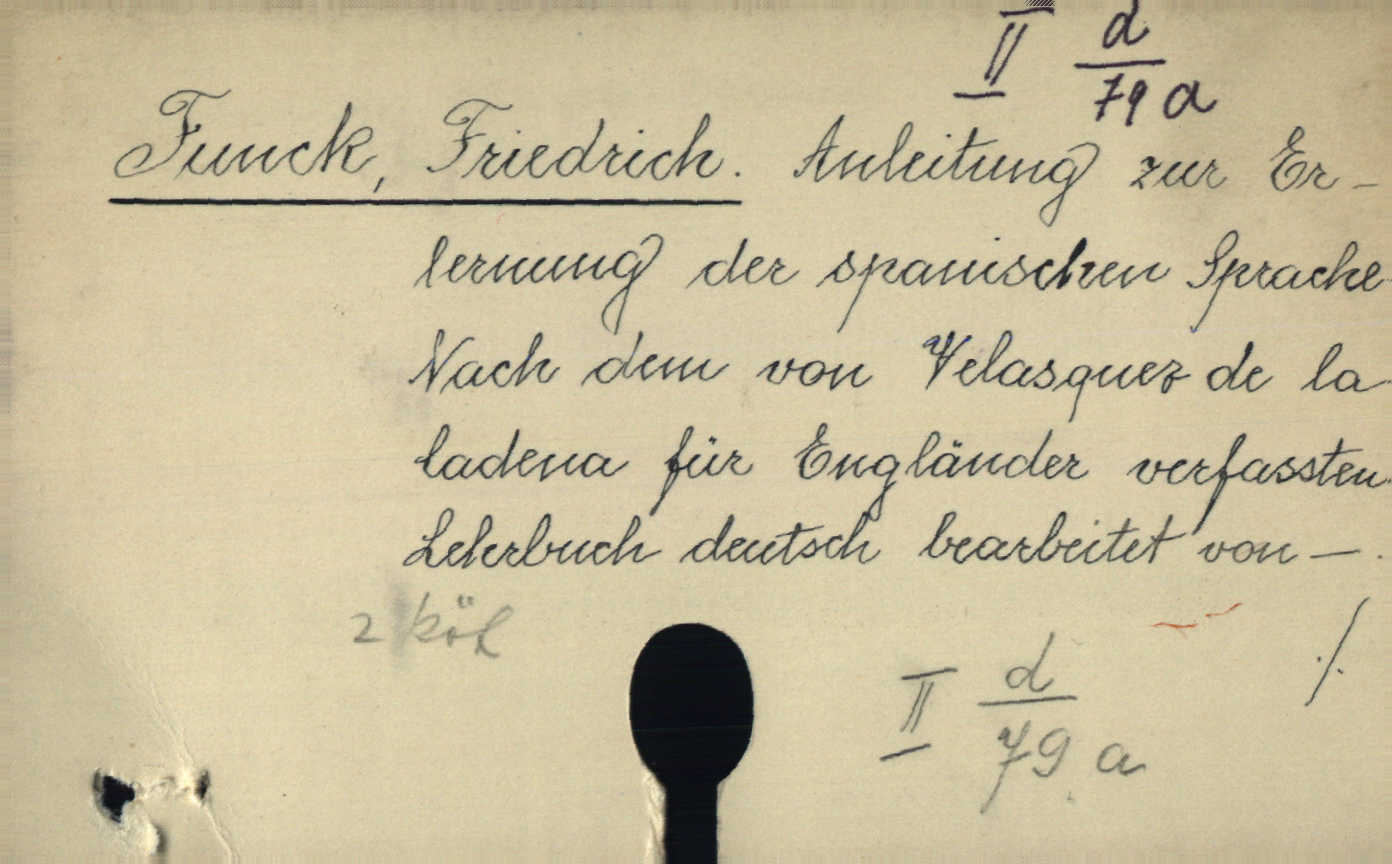 II d
79 a
Funck, Friedrich. Anleitung zur Er-
lernung der spanischen Sprache
Nach dem von Velasquez de la
ladena für Engländer verfassten
Lehrbuch deutsch bearbeitet von —.
2 köt ./.
II d
79 a